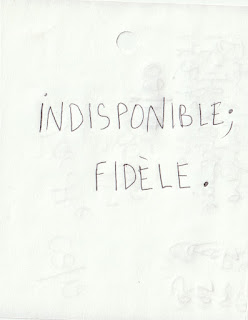 INDISPONIBLE;
FIDÈLE.